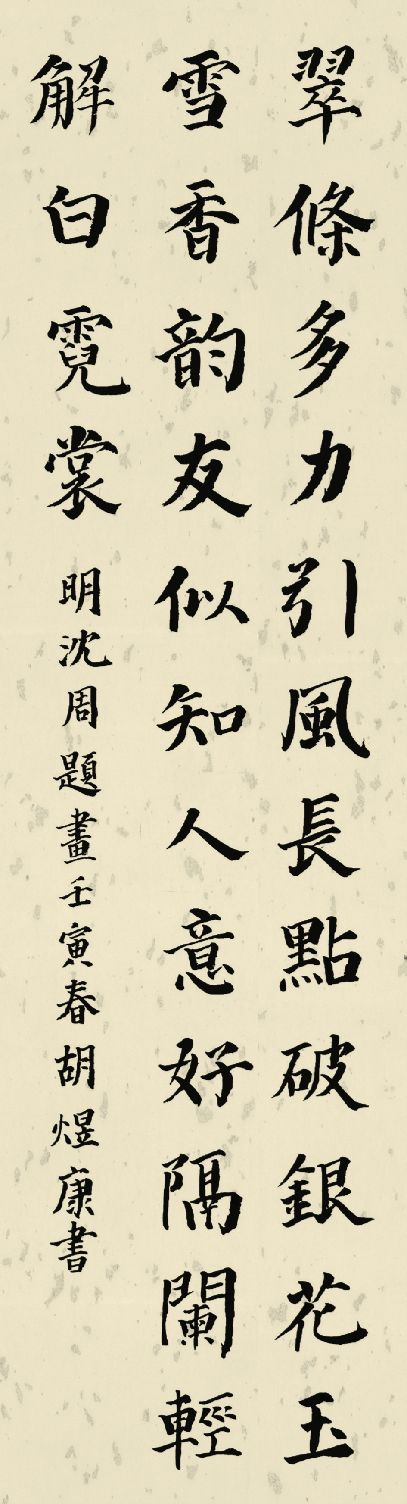 翠條多力引風長點破銀花玉
雪香韵友似知人意好隔闌輕
解白霓裳明沈周題畫壬寅春胡煜康書